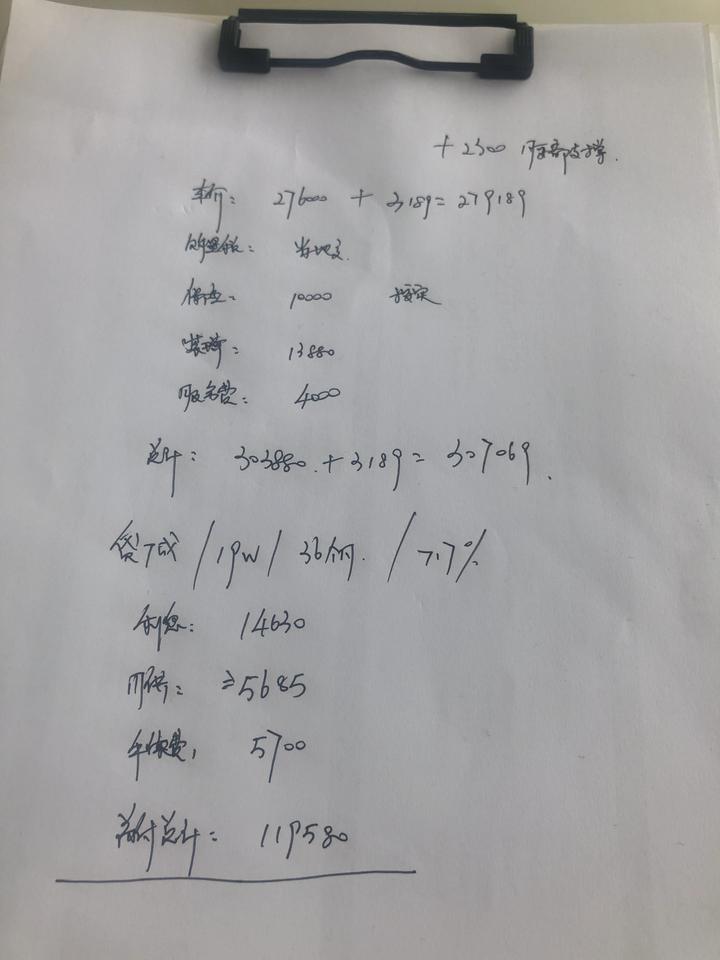 +2300 腰部支撑.
车价: 276000 + 3189=279189
购置税: 当地交.
保险: 10000 按实
装璜: 13880
服务费: 4000
总计: 303880.+3189=307069.
贷7成/19W/36个月./7.7%
利息: 14630
月供: ≥5685
手续费: 5700
首付总计: 119580